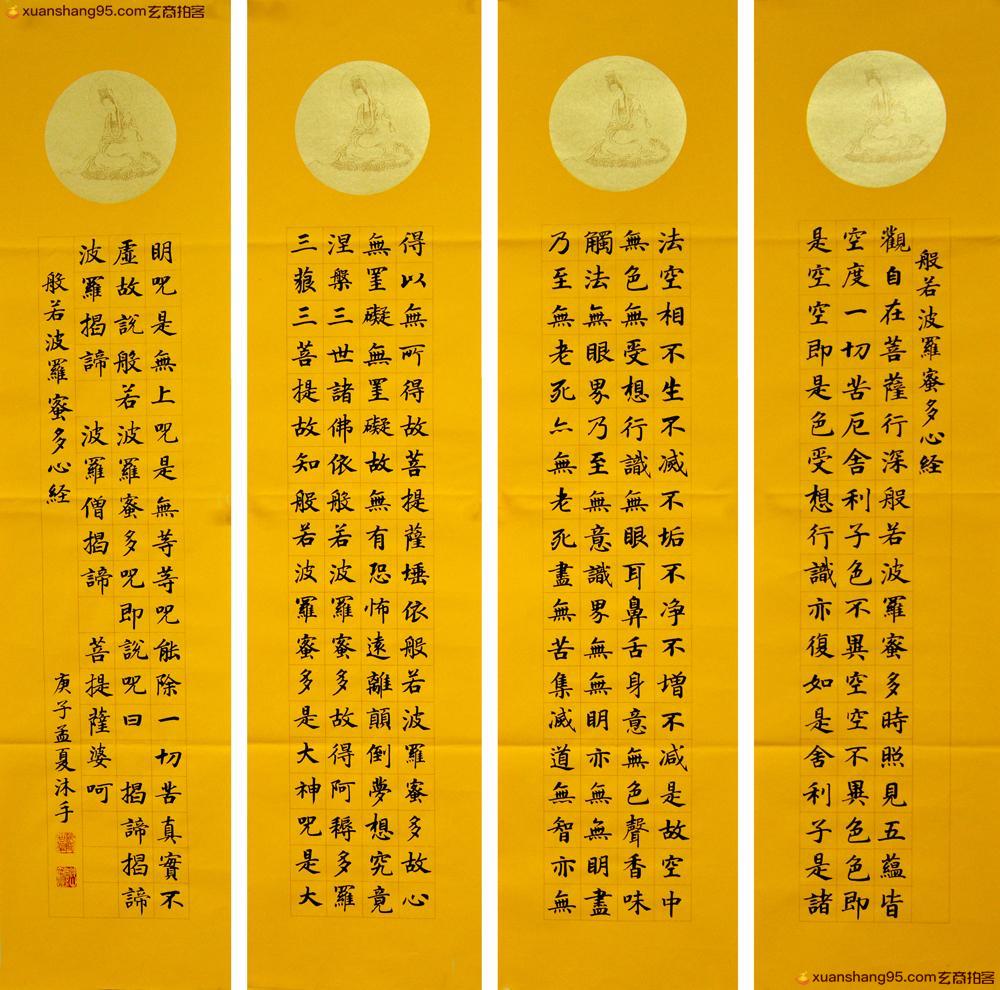 xuanshang95.com玄商拍客
般若波羅蜜多心経
觀自在菩薩行深般若波羅蜜多時照見五蘊皆
空度一切苦厄舍利子色不異空空不異色色即
是空空即是色受想行識亦復如是舍利子是諸
法空相不生不滅不垢不净不增不减是故空中
無色無受想行識無眼耳鼻舌身意無色聲香味
觸法無眼界乃至無意識界無無明亦無無明盡
乃至無老死亦無老死盡無苦集滅道無智亦無
得以無所得故菩提薩埵依般若波羅蜜多故心
無罣礙無罣礙故無有恐怖遠離顛倒夢想究竟
涅槃三世諸佛依般若波羅蜜多故得阿耨多羅
三藐三菩提故知般若波羅蜜多是大神呪是大
明呪是無上呪是無等等呪能除一切苦真實不
虛故說般若波羅蜜多呪即說呪曰 揭諦揭諦
波羅揭諦 波羅僧揭諦 菩提薩婆呵
般若波羅蜜多心経 庚子孟夏沐手
xuanshang95.com玄商拍客